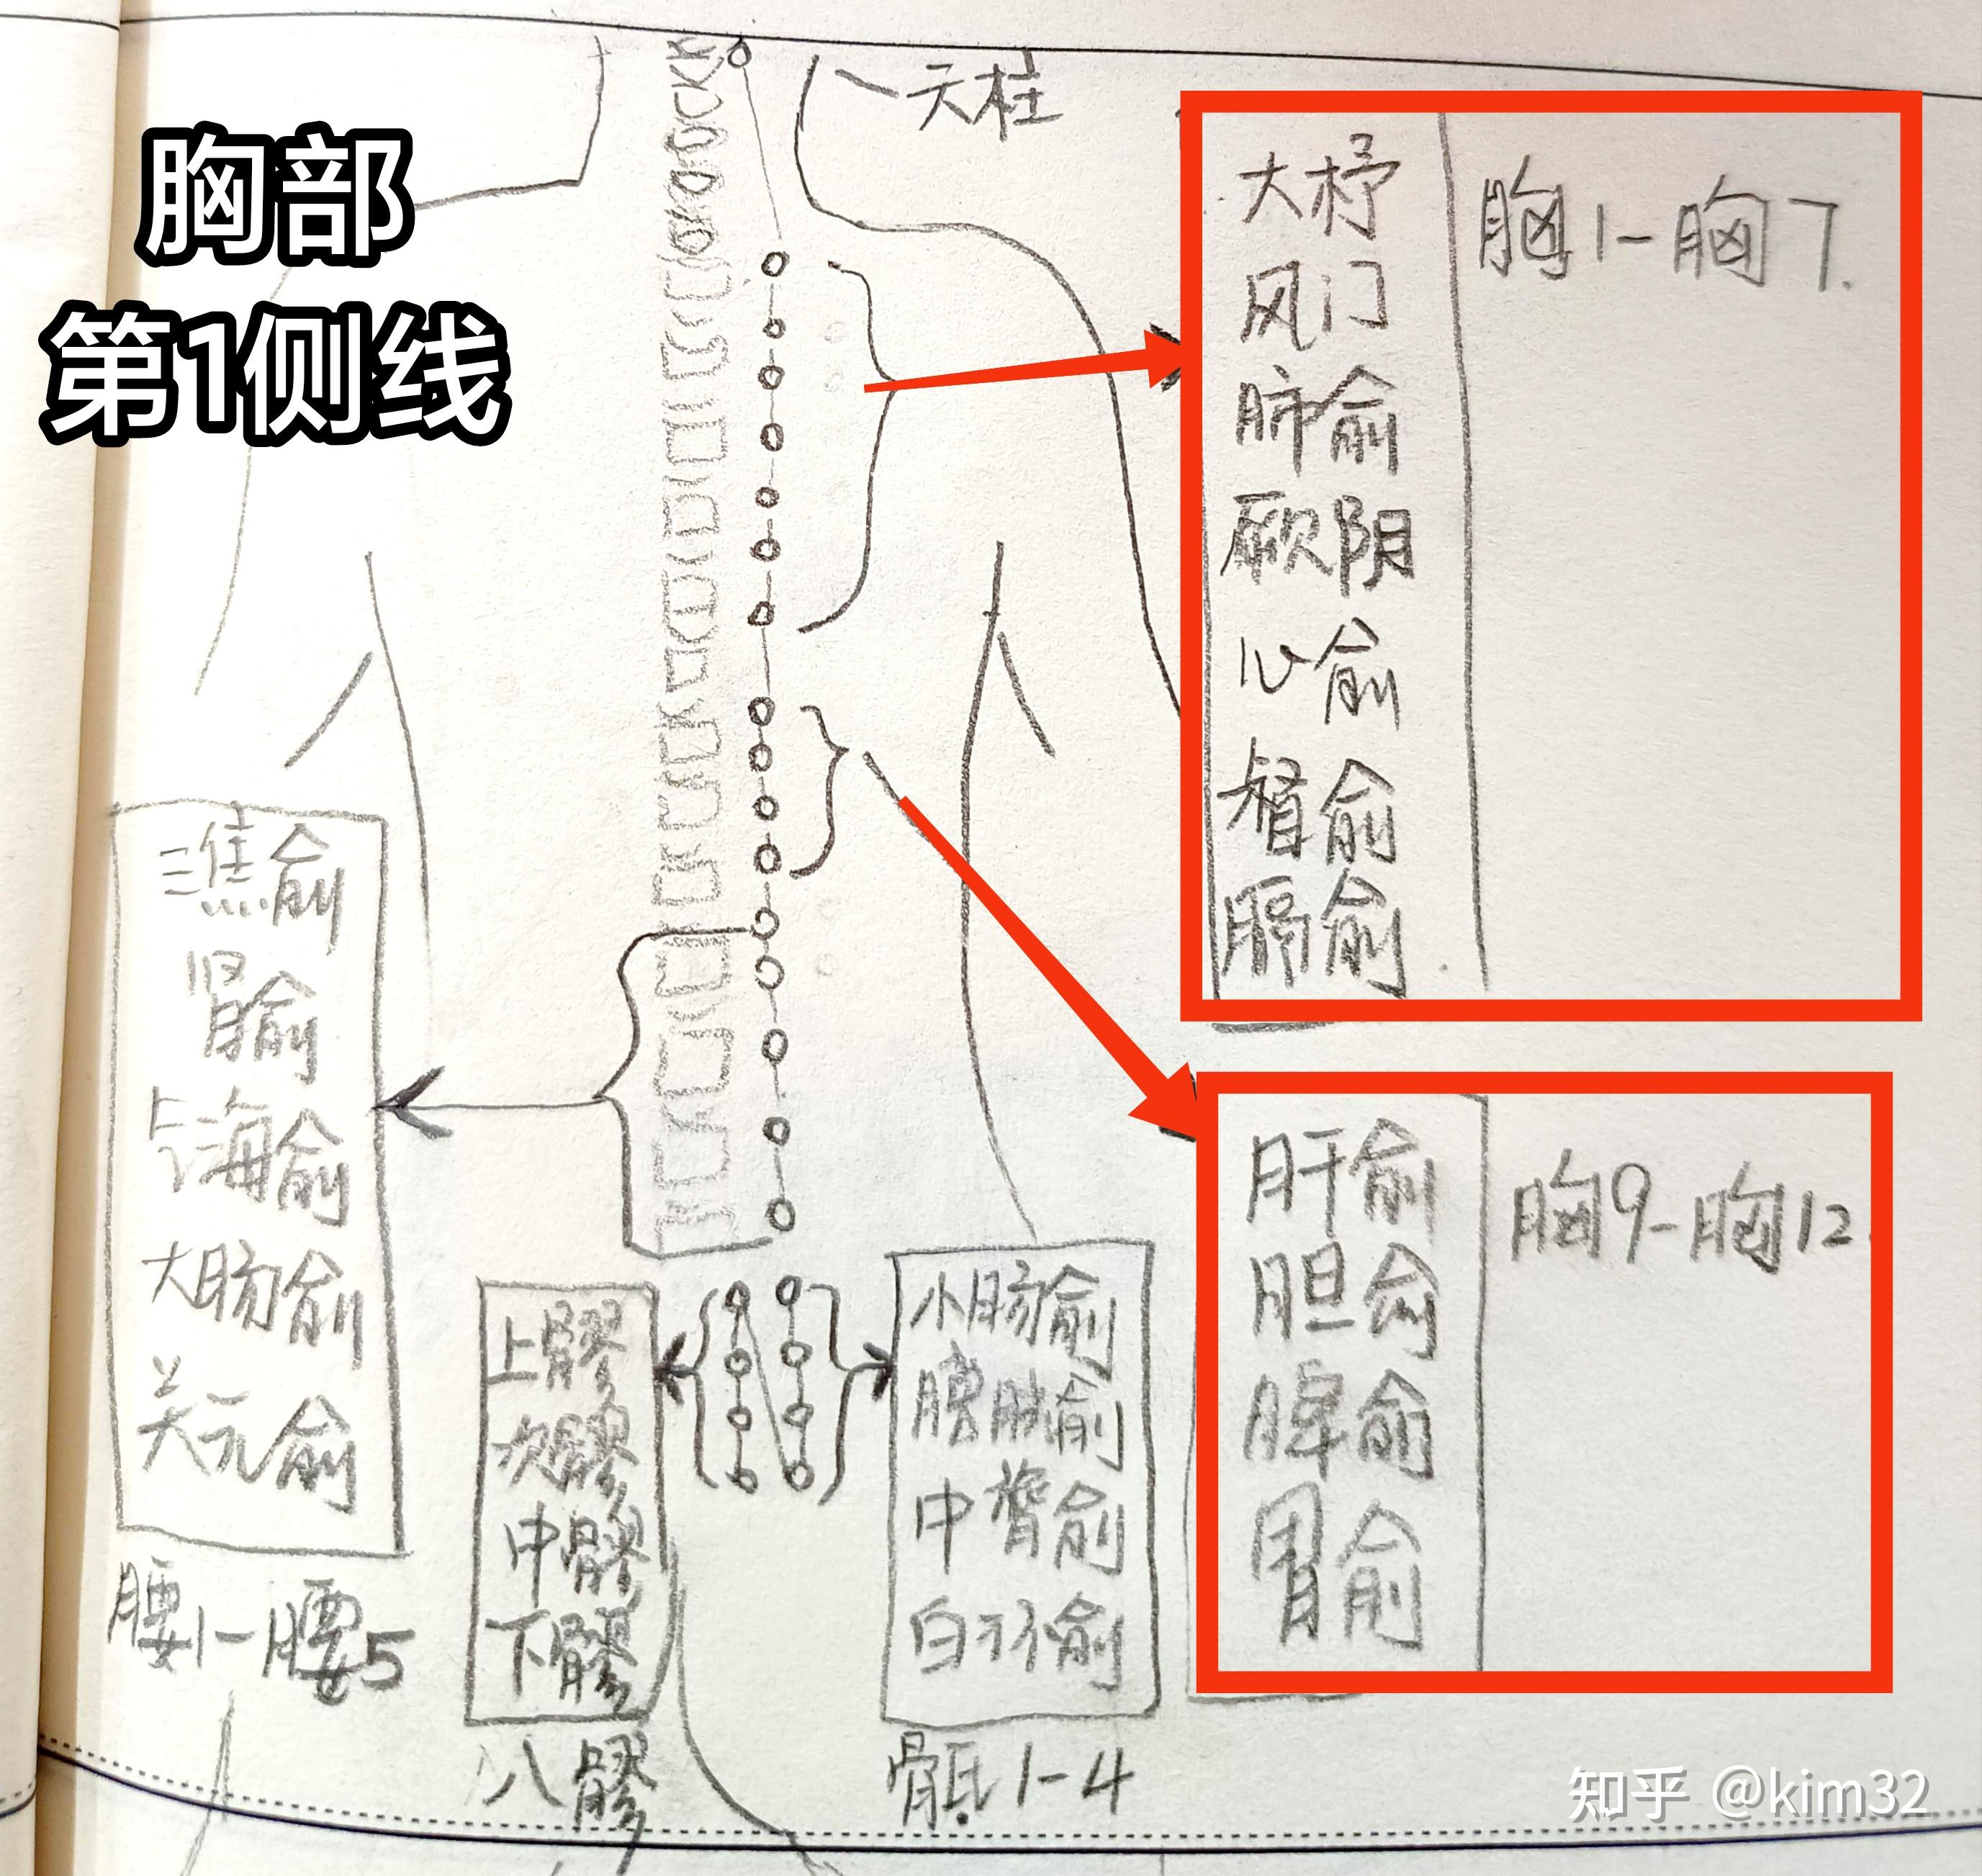 胸部
第1侧线
天柱
大杼
风门
肺俞
厥阴
心俞
督俞
膈俞
胸1-胸7.
肝俞
胆俞
脾俞
胃俞
胸9-胸12.
三焦俞
肾俞
气海俞
大肠俞
关元俞
腰1-腰5
上髎
次髎
中髎
下髎
八髎
小肠俞
膀胱俞
中膂俞
白环俞
骶1-4
知乎 @kim32